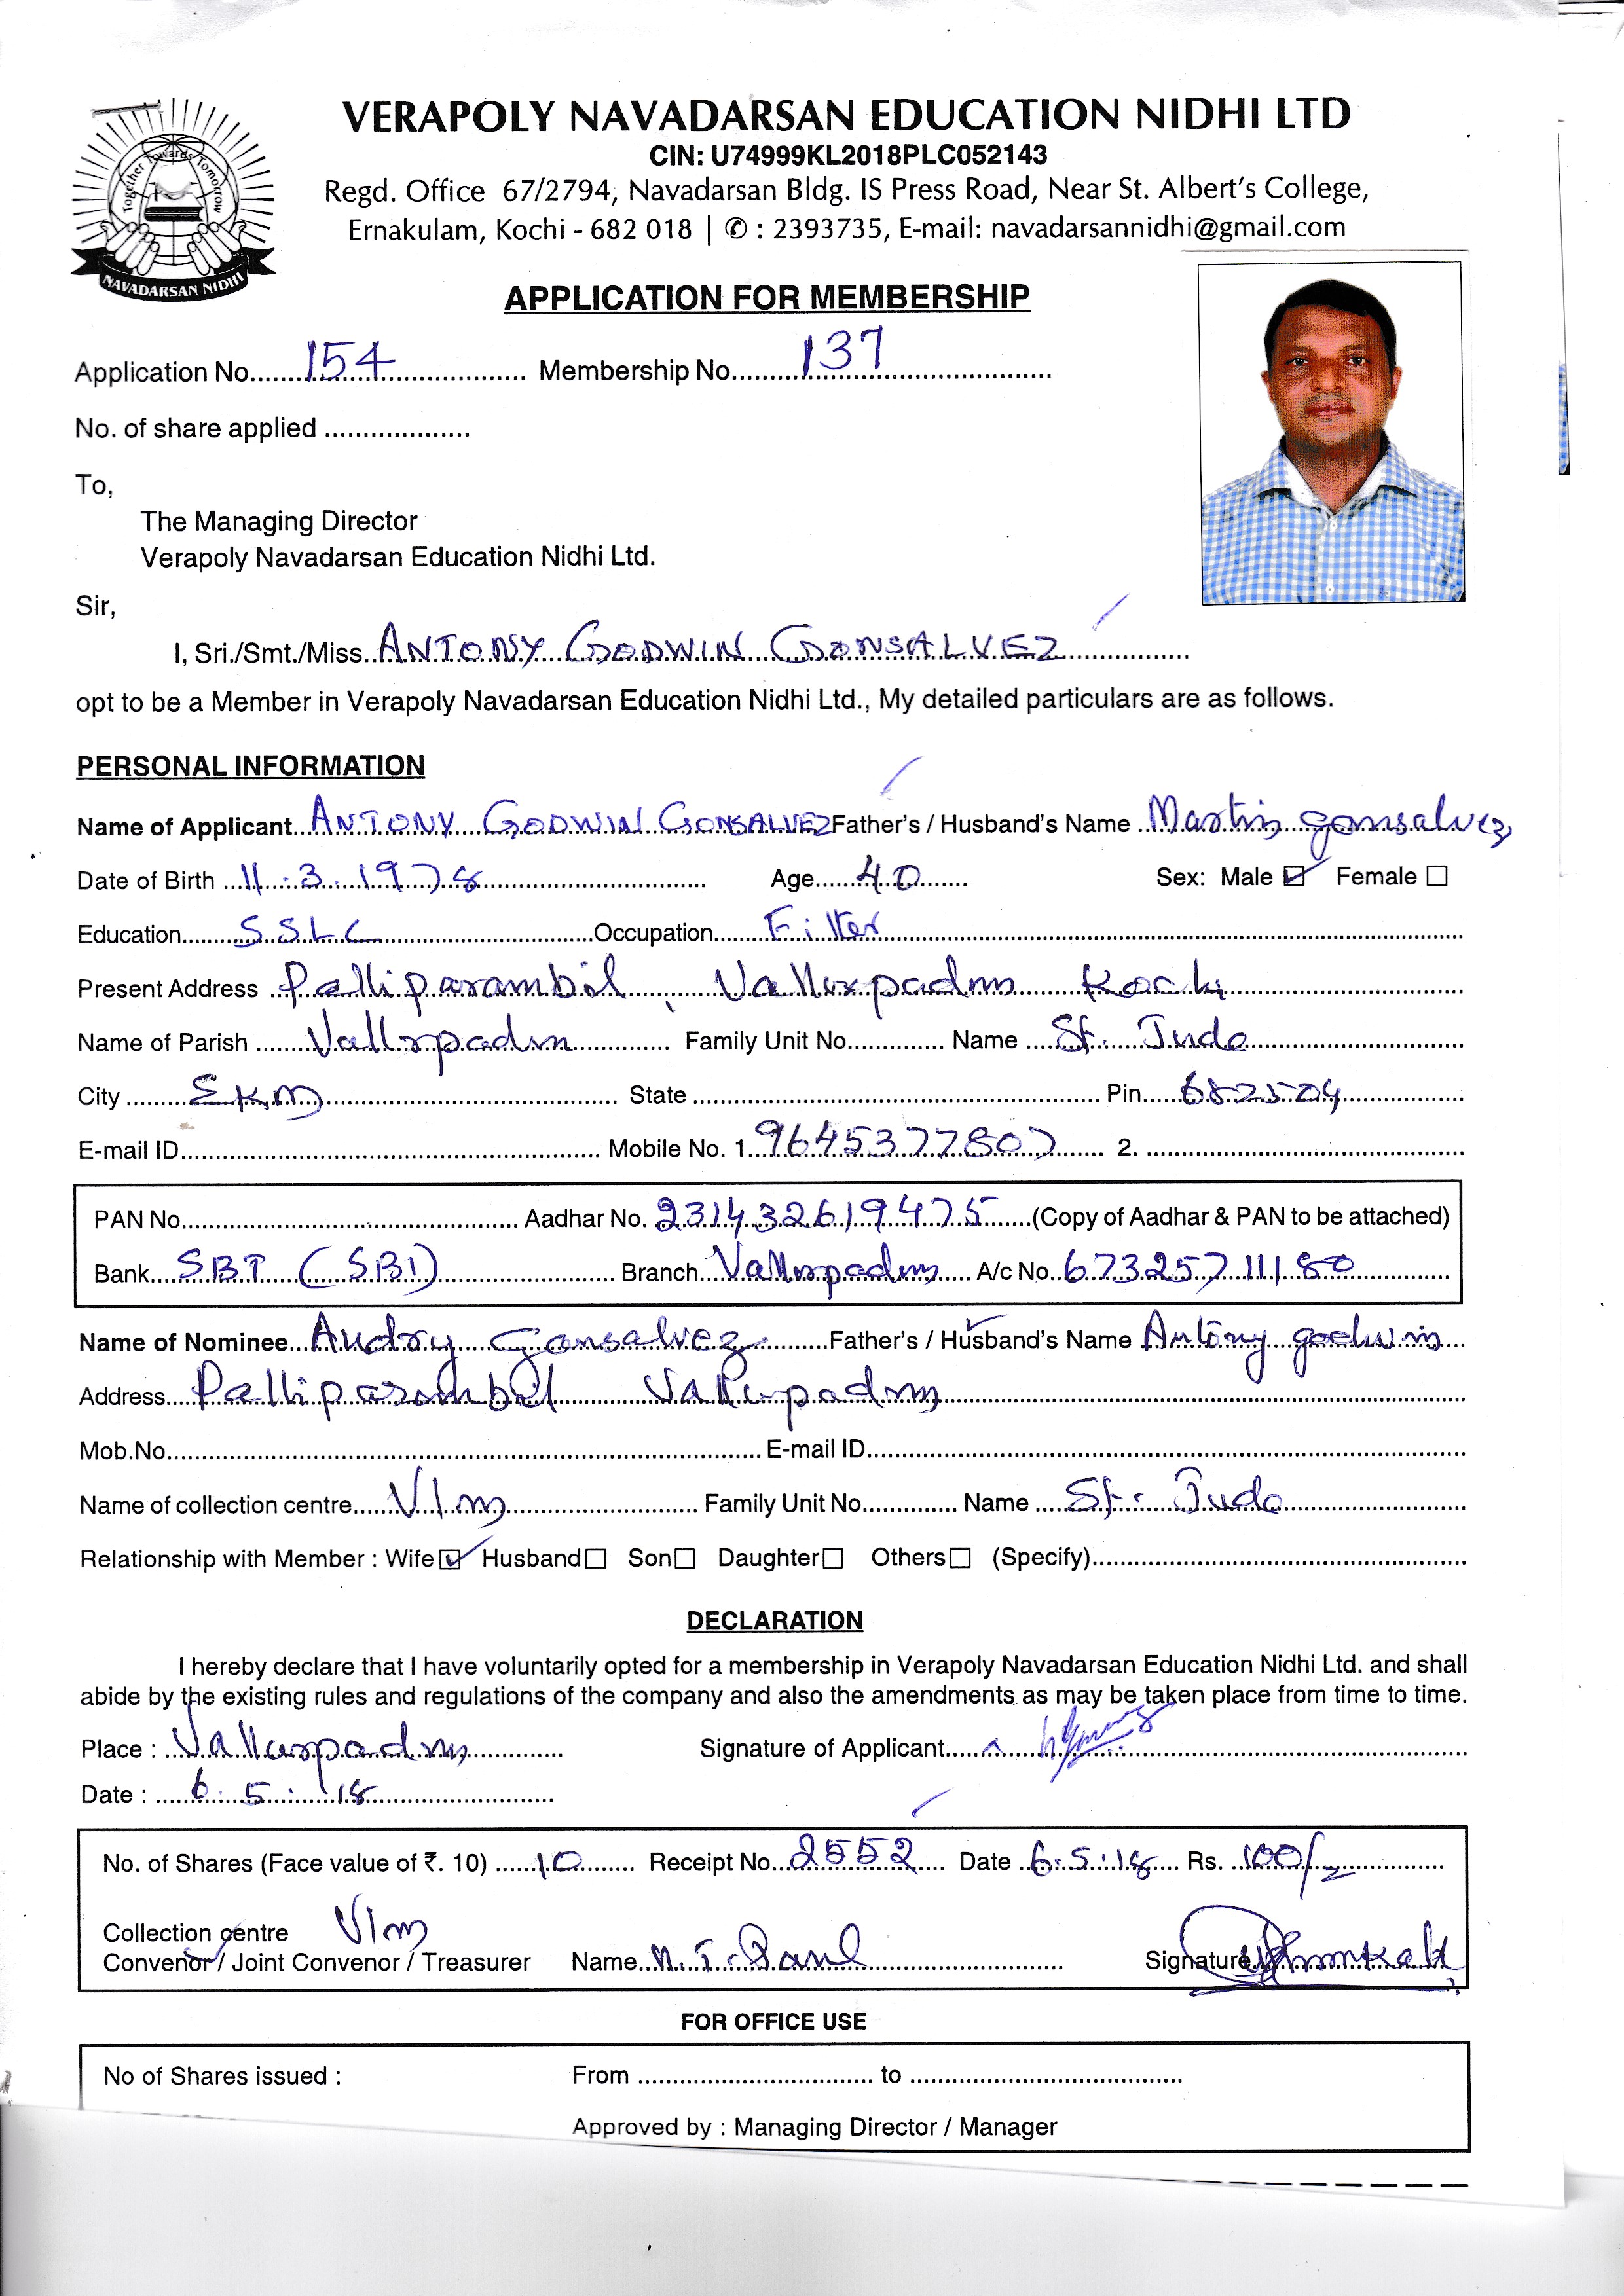 Together Towards Tomorrow
NAVADARSAN NIDHI
VERAPOLY NAVADARSAN EDUCATION NIDHI LTD
CIN: U74999KL2018PLC052143
Regd. Office 67/2794, Navadarsan Bldg. IS Press Road, Near St. Albert's College,
Ernakulam, Kochi - 682 018 | ✆ : 2393735, E-mail: navadarsannidhi@gmail.com
APPLICATION FOR MEMBERSHIP
Application No. 154 Membership No. 137
No. of share applied
To,
The Managing Director
Verapoly Navadarsan Education Nidhi Ltd.
Sir,
I, Sri./Smt./Miss. ANTONY GODWIN GONSALVEZ
opt to be a Member in Verapoly Navadarsan Education Nidhi Ltd., My detailed particulars are as follows.
PERSONAL INFORMATION
Name of Applicant ANTONY GODWIN GONSALVEZ Father's / Husband's Name Martin gonsalvez
Date of Birth 11.3.1978 Age 40 Sex: Male ☑ Female ☐
Education SSLC Occupation Fitter
Present Address Palliparambil, Vallarpadm Kochi
Name of Parish Vallrpadm Family Unit No. Name St. Jude
City EKM State Pin 682504
E-mail ID Mobile No. 1. 9645377807 2.
PAN No. Aadhar No. 231432619475 (Copy of Aadhar & PAN to be attached)
Bank SBT (SBI) Branch Vallarpadm A/c No. 67325711180
Name of Nominee Audry Gonsalvez Father's / Husband's Name Antony godwin
Address Palliparambil Vallarpadm
Mob.No. E-mail ID
Name of collection centre Vlm Family Unit No. Name St. Jude
Relationship with Member : Wife ☑ Husband ☐ Son ☐ Daughter ☐ Others ☐ (Specify)
DECLARATION
I hereby declare that I have voluntarily opted for a membership in Verapoly Navadarsan Education Nidhi Ltd. and shall
abide by the existing rules and regulations of the company and also the amendments as may be taken place from time to time.
Place : Vallarpadm Signature of Applicant
Date : 6.5.18
No. of Shares (Face value of ₹. 10) 10 Receipt No. 2552 Date 6.5.18 Rs. 100/-
Collection centre Vlm
Convenor / Joint Convenor / Treasurer Name N.T. Paul Signature
FOR OFFICE USE
No of Shares issued : From to
Approved by : Managing Director / Manager